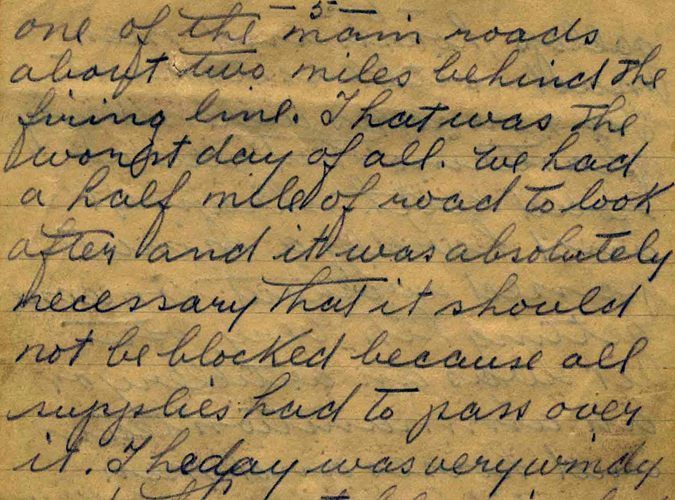 -5-
one of the main roads
about two miles behind the
firing line. That was the
worst day of all. We had
a half mile of road to look
after and it was absolutely
necessary that it should
not be blocked because all
supplies had to pass over
it. The day was very windy